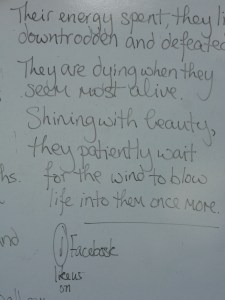 Their energy spent, they li
downtrodden and defeated
They are dying when they
seem most alive.
Shining with beauty,
they patiently wait
hs. for the wind to blow
life into them once more.
nd
Facebook
on